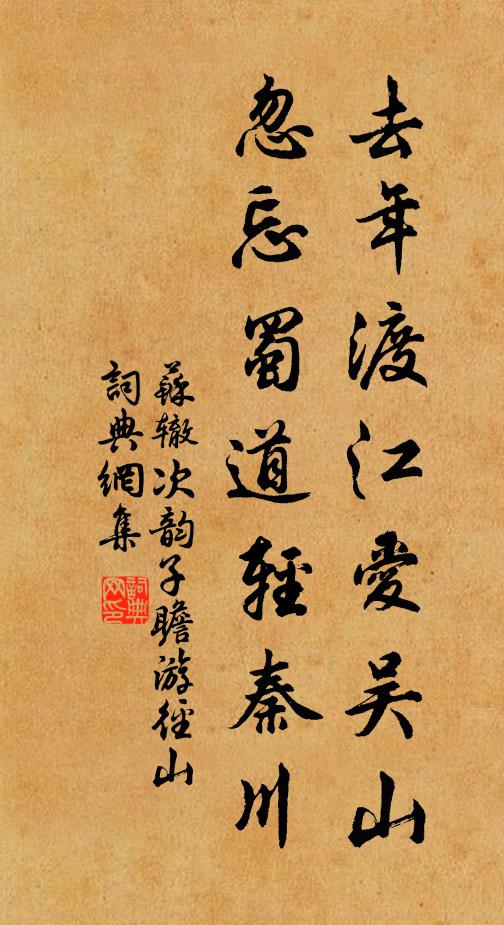 去年渡江愛吴山
忽忘蜀道輕秦川
蘇辙次韵子瞻游徑山
詞典網集
詞典网印